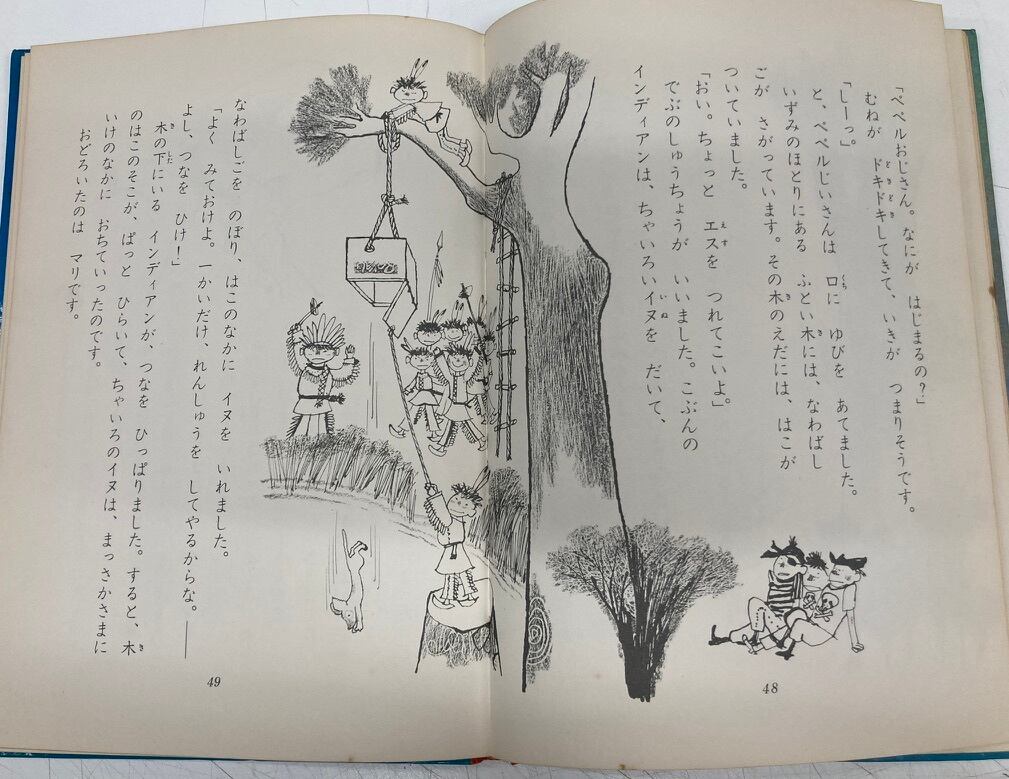 「ペペルおじさん。なにが　はじまるの？」
むねが　ドキドキしてきて、いきが　つまりそうです。
「しーっ。」
と、ペペルじいさんは　口に　ゆびを　あてました。
いずみのほとりにある　ふとい木には、なわばし
ごが　さがっています。その木のえだには、はこが
ついていました。
「おい。ちょっと　エスを　つれてこいよ。」
でぶのしゅうちょうが　いいました。こぶんの
インディアンは、ちゃいろいイヌを　だいて、
48
なわばしごを　のぼり、はこのなかに　イヌを　いれました。
「よく　みておけよ。一かいだけ、れんしゅうを　してやるからな。――
よし、つなを　ひけ！」
木の下にいる　インディアンが、つなを　ひっぱりました。すると、木
のはこのそこが、ぱっと　ひらいて、ちゃいろのイヌは、まっさかさまに
いけのなかに　おちていったのです。
おどろいたのは　マリです。
49